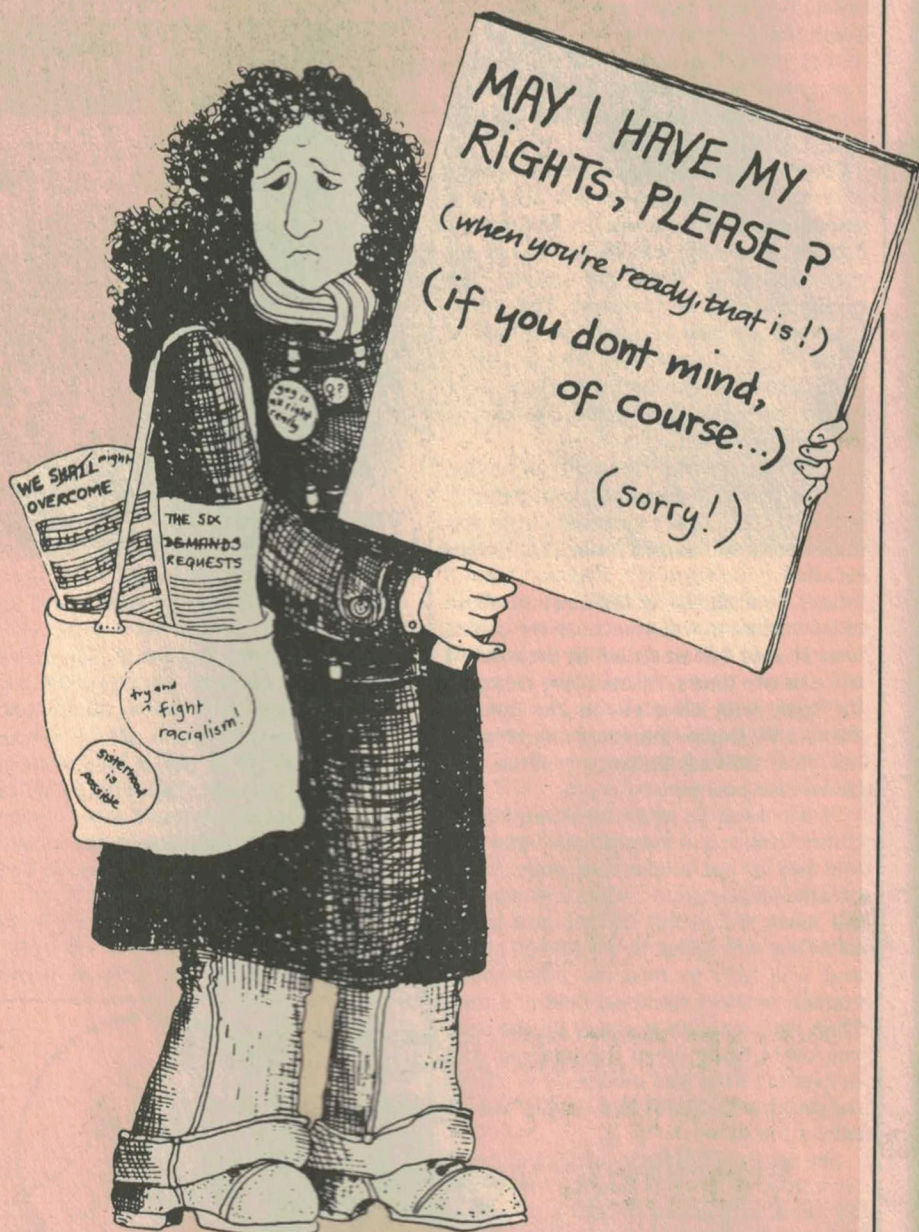 MAY I HAVE MY
RIGHTS, PLEASE ?
(when you're ready, that is!)
(if you dont mind,
of course...)
(sorry!)
gay is
as right
really
♀?
WE SHALL might
OVERCOME
THE SIX
DEMANDS
REQUESTS
try and
fight
racialism!
sisterhood
is
possible